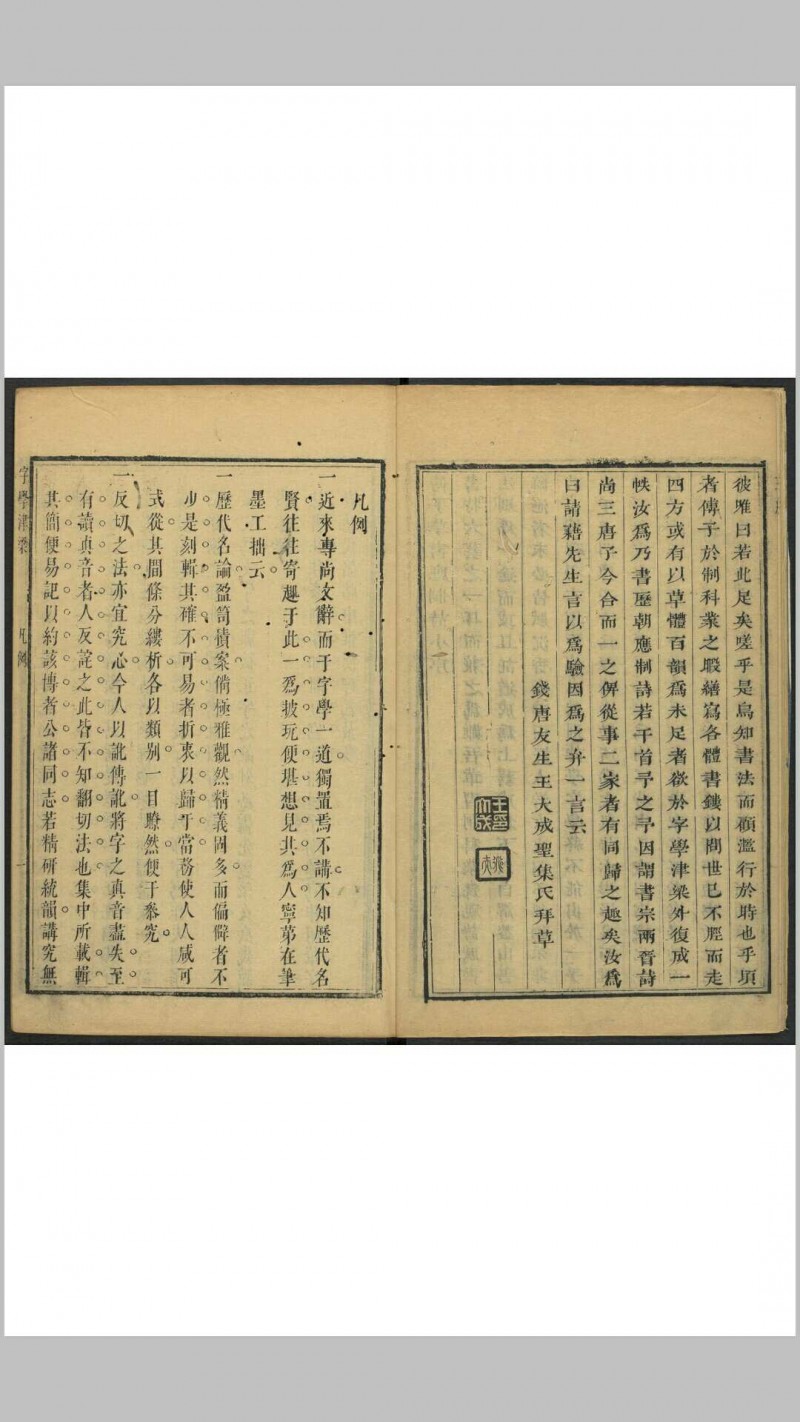 彼唯曰若此足矣嗟乎是烏知書法而顧濫行於時也乎頃
者傅子於制科業之暇繕寫各體書鏤以問世已不脛而走
四方或有以草體百韻爲未足者欲於字學津梁外復成一
帙汝爲乃書歷朝應制詩若干首予之予因謂書宗兩晉詩
尚三唐予今合而一之俾從事二家者有同歸之趣矣汝爲
曰請藉先生言以爲驗因爲之弁一言云
錢唐友生王大成聖集氏拜草
凡例
一近來專尚文辭而于字學一道獨置焉不講不知歷代名
賢往往寄趣于此一爲披玩便堪想見其爲人寧第在筆
墨工拙云
一歷代名論盈笥積案備極雅觀然精義固多而偏僻者不
少是刻輯其確不可易者折衷以歸于當務使人人咸可
式從其間條分縷析各以類別一目瞭然便于叅究
一反切之法亦宜究心今人以訛傳訛將字之真音盡失至
有讀真音者人反詫之此皆不知翻切法也集中所載輯
其簡便易記以約該博者公諸同志若精硏統韻講究無
字學津梁
凡例
一